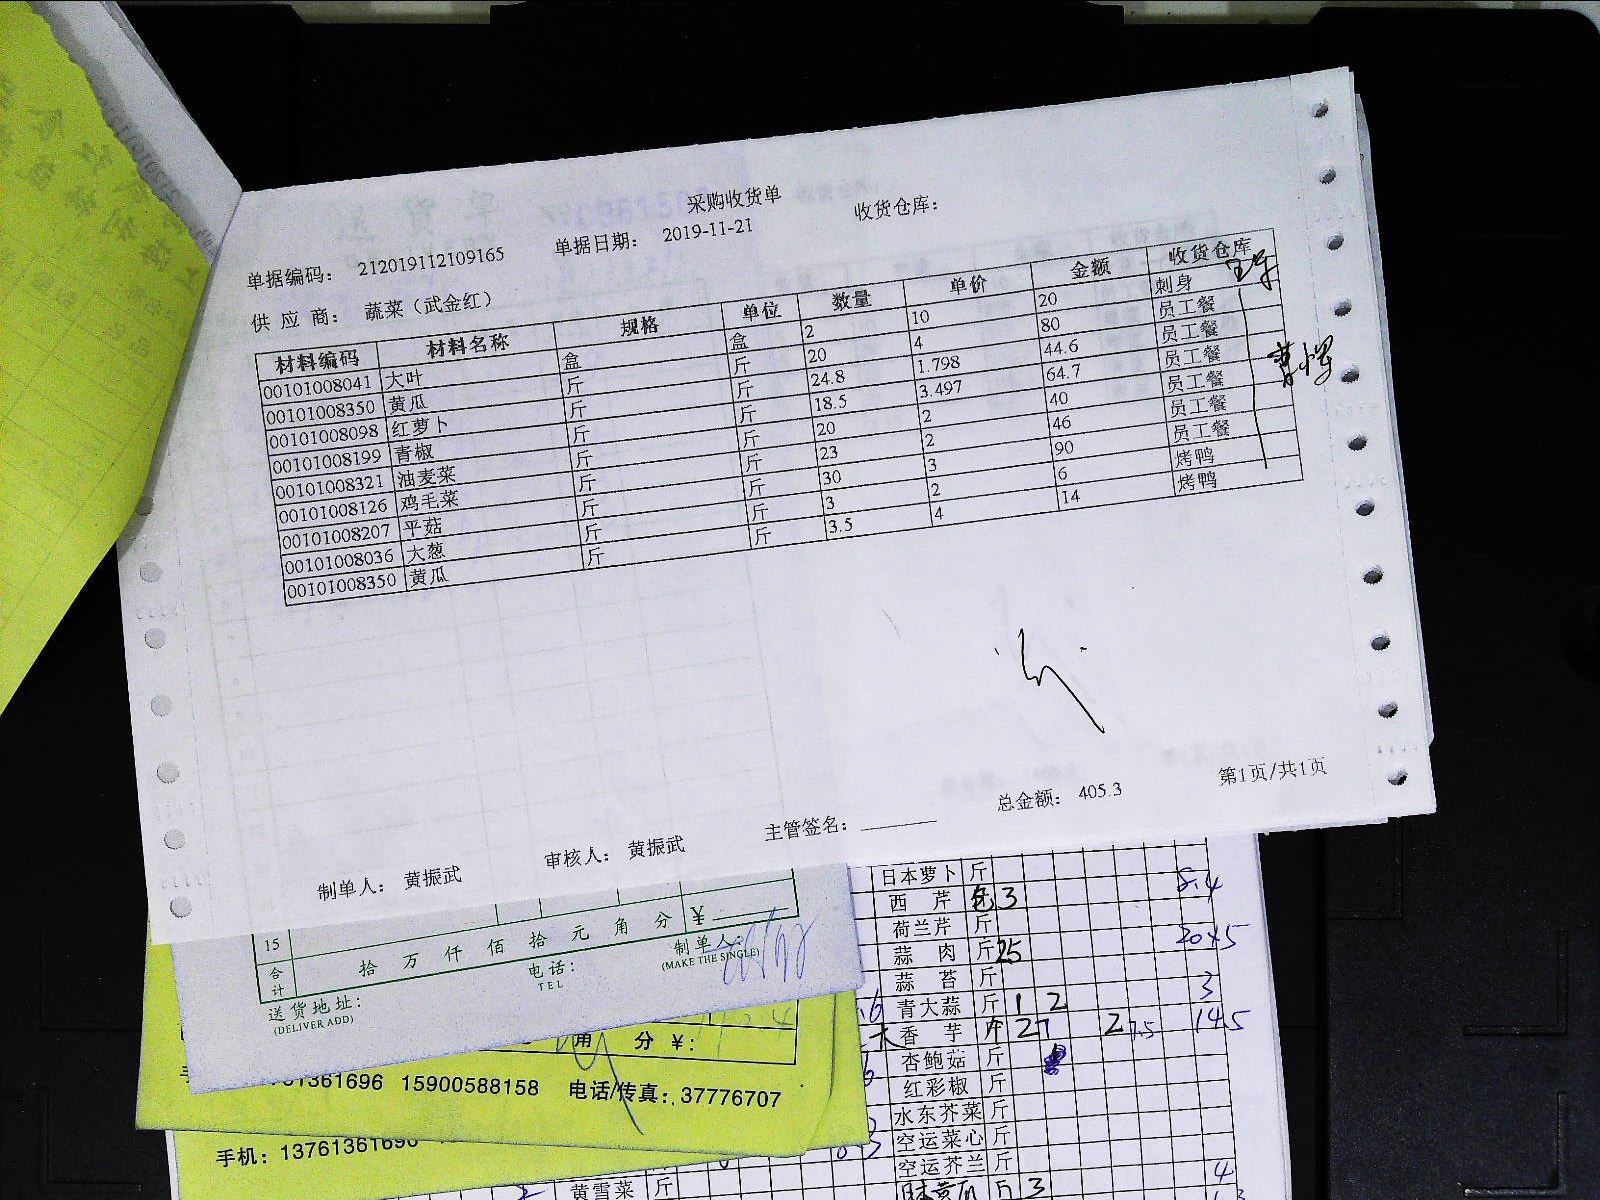 采购收货单
单据编码： 212019112109165 单据日期： 2019-11-21 收货仓库：
供 应 商： 蔬菜（武金红）
材料编码 材料名称 规格 单位 数量 单价 金额 收货仓库
00101008041 大叶 盒 盒 2 10 20 刺身
00101008350 黄瓜 斤 斤 20 4 80 员工餐
00101008098 红萝卜 斤 斤 24.8 1.798 44.6 员工餐
00101008199 青椒 斤 斤 18.5 3.497 64.7 员工餐
00101008321 油麦菜 斤 斤 20 2 40 员工餐
00101008126 鸡毛菜 斤 斤 23 2 46 员工餐
00101008207 平菇 斤 斤 30 3 90 员工餐
00101008036 大葱 斤 斤 3 2 6 烤鸭
00101008350 黄瓜 斤 斤 3.5 4 14 烤鸭
制单人： 黄振武 审核人： 黄振武 主管签名： 总金额： 405.3 第1页/共1页
15
合计 拾 万 仟 佰 拾 元 角 分 ¥
送货地址：
(DELIVER ADD)
电话：
TEL
制单人：
(MAKE THE SINGLE)
角 分 ¥：
1361696 15900588158 电话/传真：37776707
手机：13761361696
日本萝卜 斤
西 芹 3 8.4
荷兰芹 斤
蒜 肉 斤 25
蒜 苔 斤
青大蒜 斤 1 2 3
香 芋 斤 27 2 145
杏鲍菇 斤
红彩椒 斤
水东芥菜 斤
空运菜心 斤
空运芥兰 斤 4
黄雪菜 斤